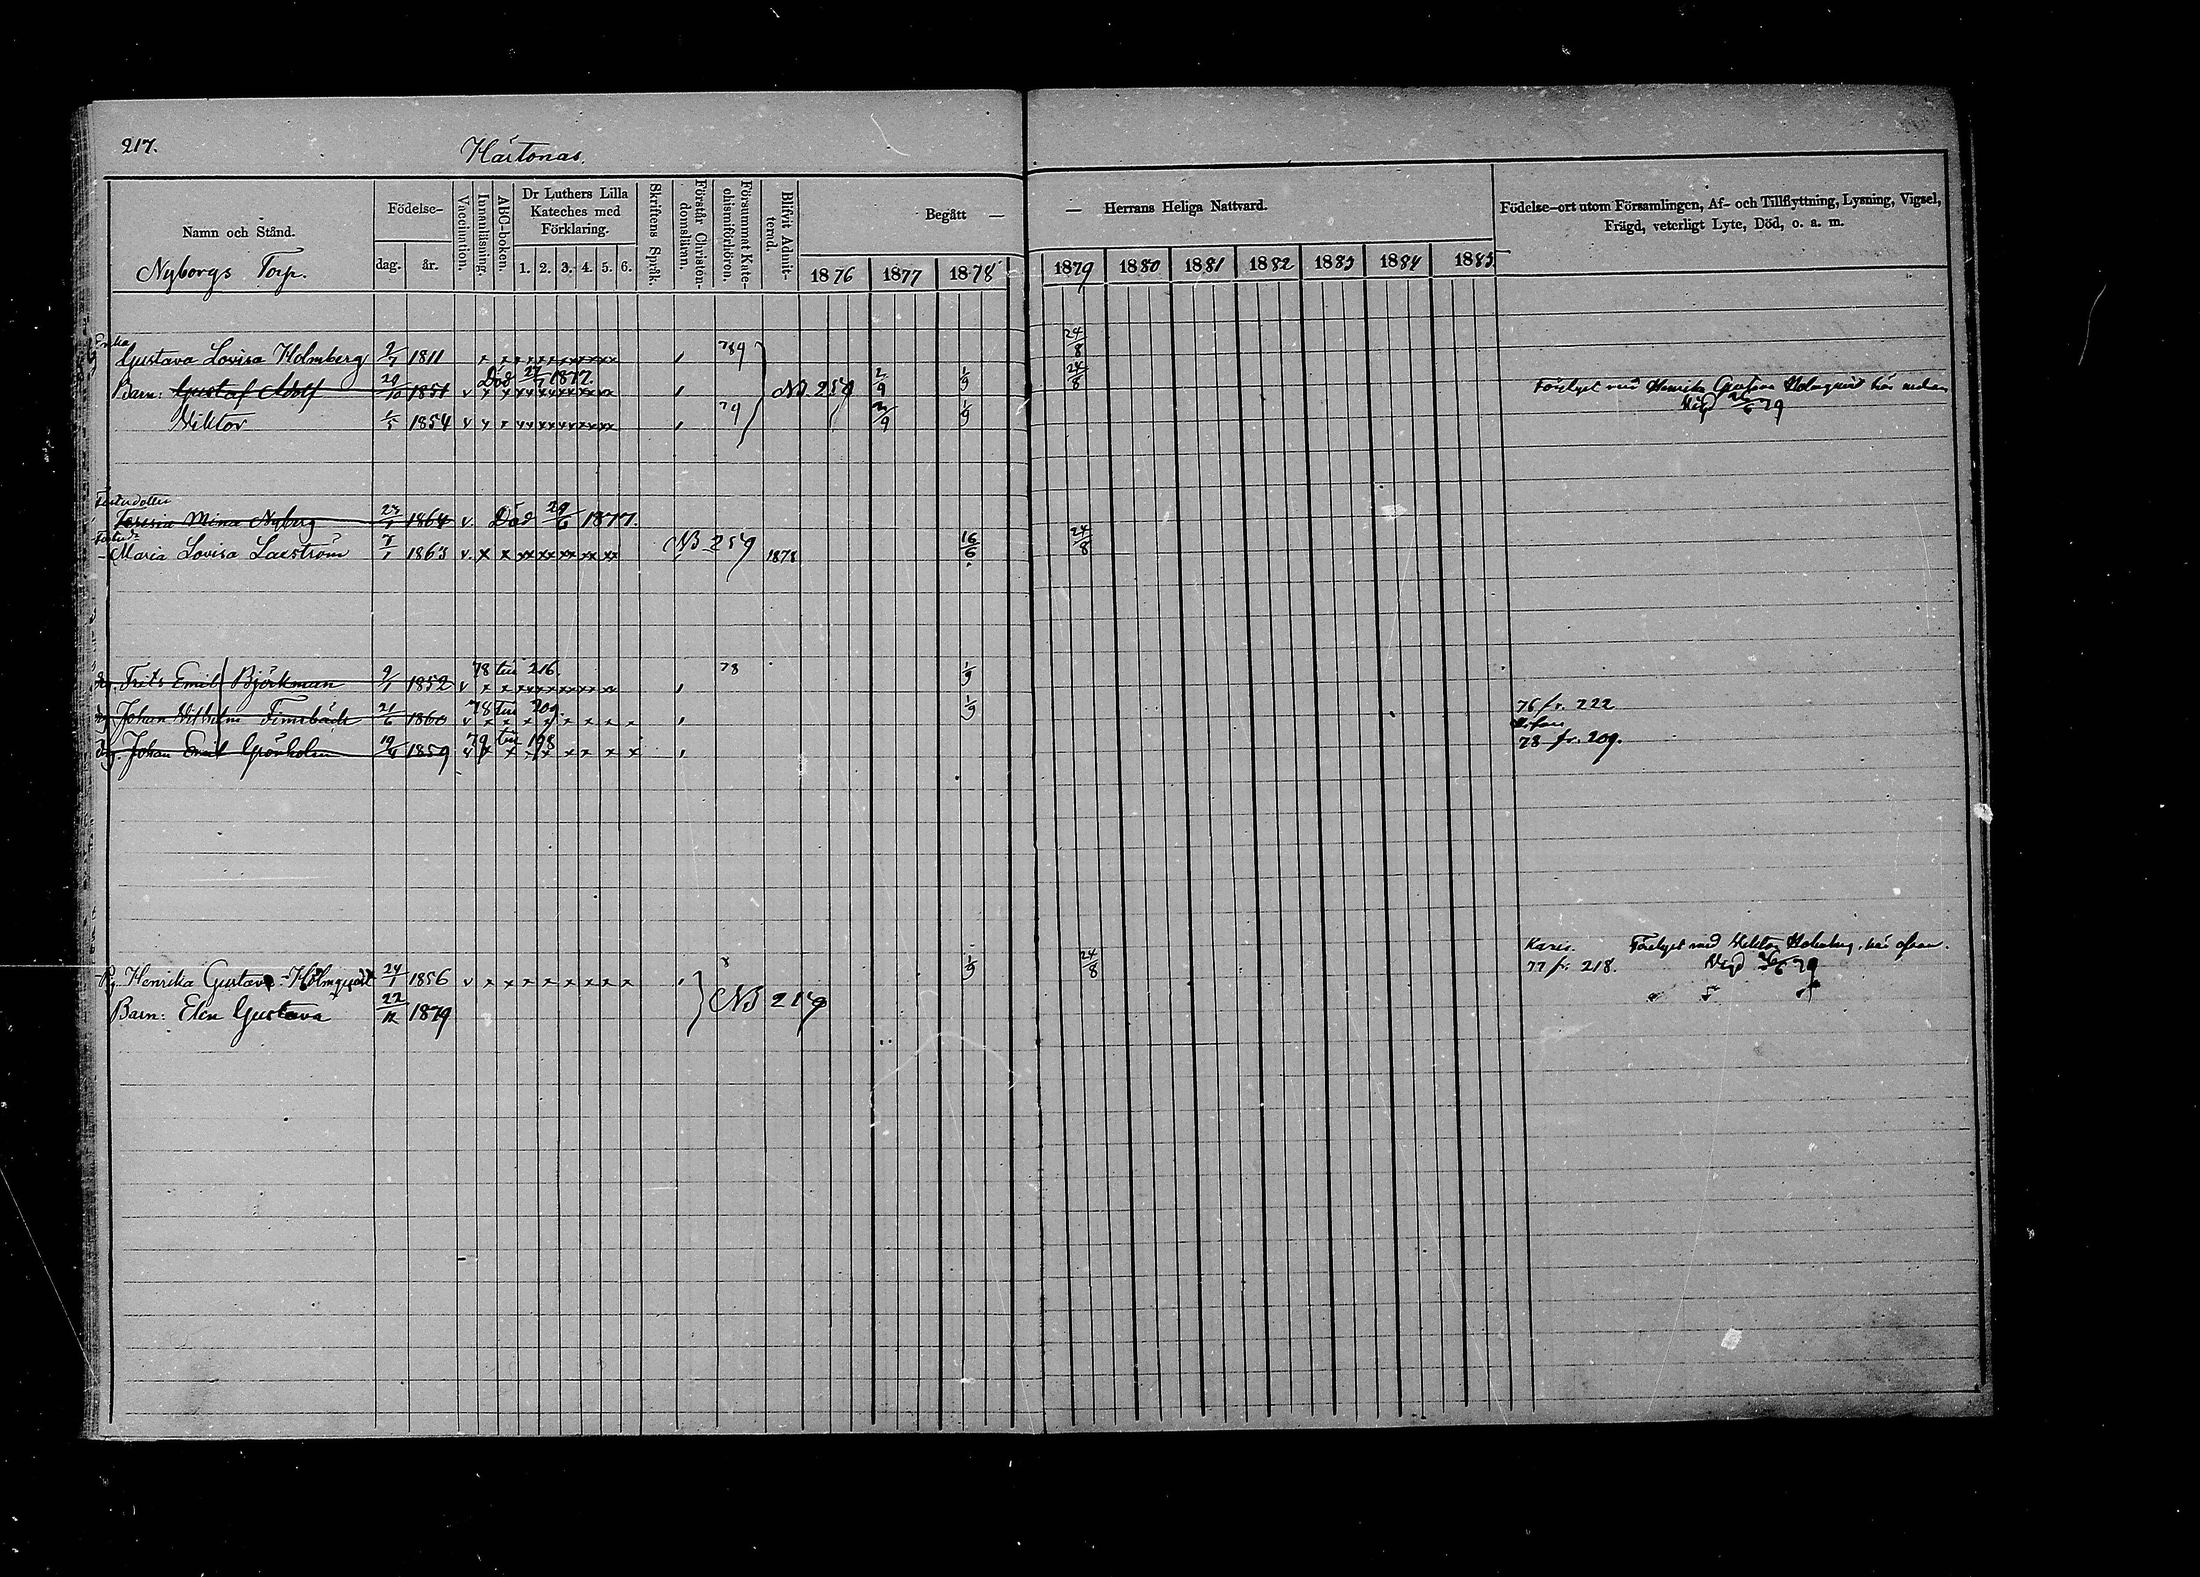 217.
Håitonas.
Namn och Stånd.
Födelse-
dag.
år.
Vaccination.
Innanläsning.
ABC-boken.
Dr Luthers Lilla
Kateches med
Förklaring.
1. 2. 3. 4. 5. 6.
Skriftens Språk.
Förstår Christen-
domsläran.
Försummat Kate-
chismiförhören.
Blifvit Admit-
terad.
Begått —
— Herrans Heliga Nattvard.
1876 1877 1878
1879 1880 1881 1882 1883 1884 1885
Födelse-ort utom Församlingen, Af- och Tillflyttning, Lysning, Vigsel,
Frägd, veterligt Lyte, Död, o. a. m.
Nyborgs Torp.
Enka
Gustava Lovisa Holmberg 2/7 1811 24/8
Död 27/7 1877.
Barn: Gustaf Adolf 20/10 1851 v NB 259 2/9 1/9 24/8
Förelyst med Henrika Gustava Holmqvist här nedan
Wigd 26/6 79
Viktor 1/5 1854 v 79 2/9 1/9
Fosterdotter
Mina Nyberg 1864 v. Död 29/6 1877.
Maria Lovisa Laeström 1863 v. NB 259 1878 16/6 24/8
78 till 216.
Frits Emil Björkman 9/1 1852 v 78 1/9
78 till 209.
Johan Vilhelm 21/6 1860 v 1/9 76 fr. 222
79 till 198
Johan Emil Grönholm 19/4 1859 v 78 fr. 209.
Karis. Förelyst med Viktor Holmberg, här ofvan.
Pg. Henrika Gustava Holmqvist 24/1 1856 v 1/9 24/8 77 fr. 218. Wigd 26/6 79
Barn: Elin Gustava 22/12 1879 NB 259